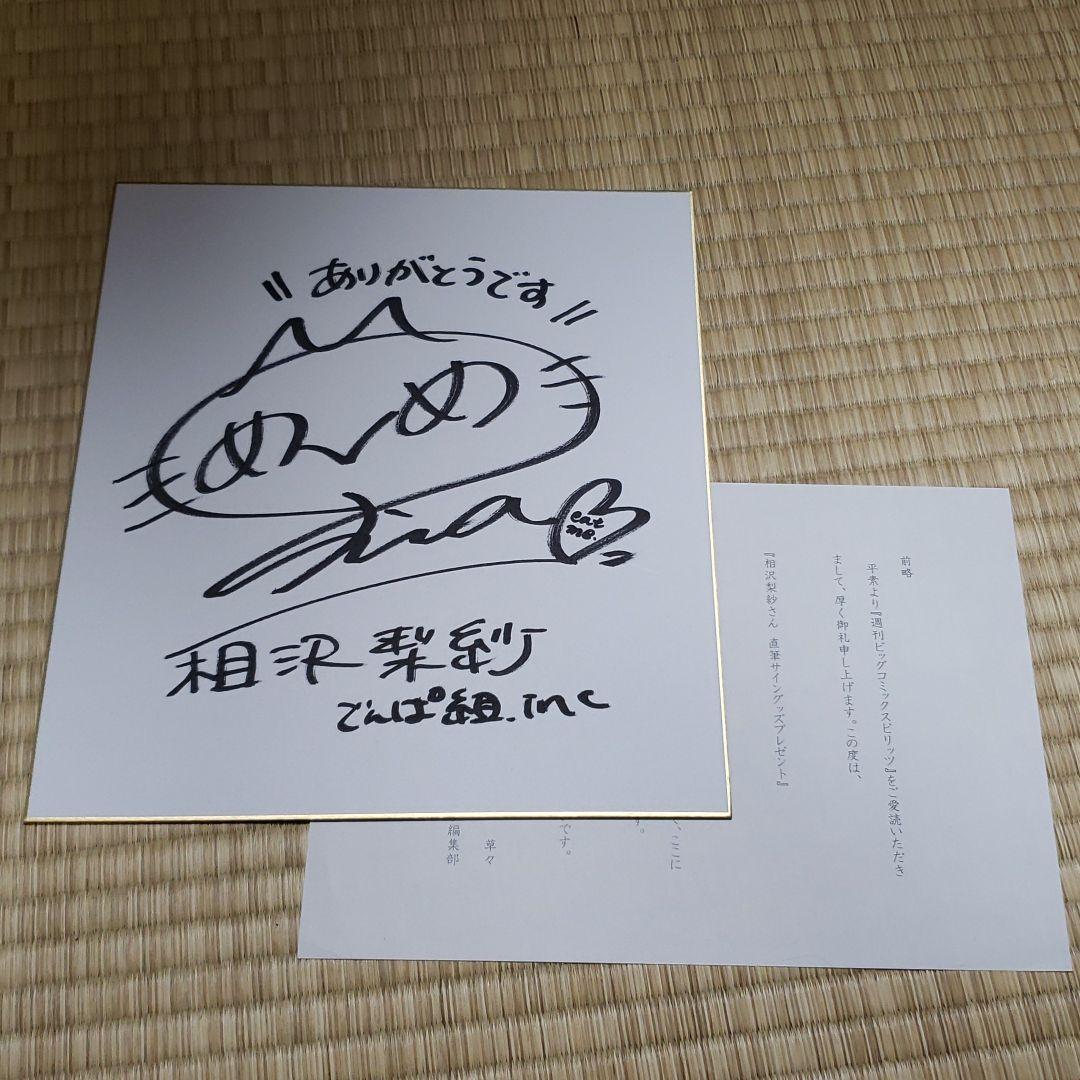 ありがとうです
めんめ
eat
me.
相沢梨紗
でんぱ組.inc
前略
平素より『週刊ビッグコミックスピリッツ』をご愛読いただき
まして、厚く御礼申し上げます。この度は、
『相沢梨紗さん　直筆サイングッズプレゼント』
、ここに
す。
です。
草々
編集部